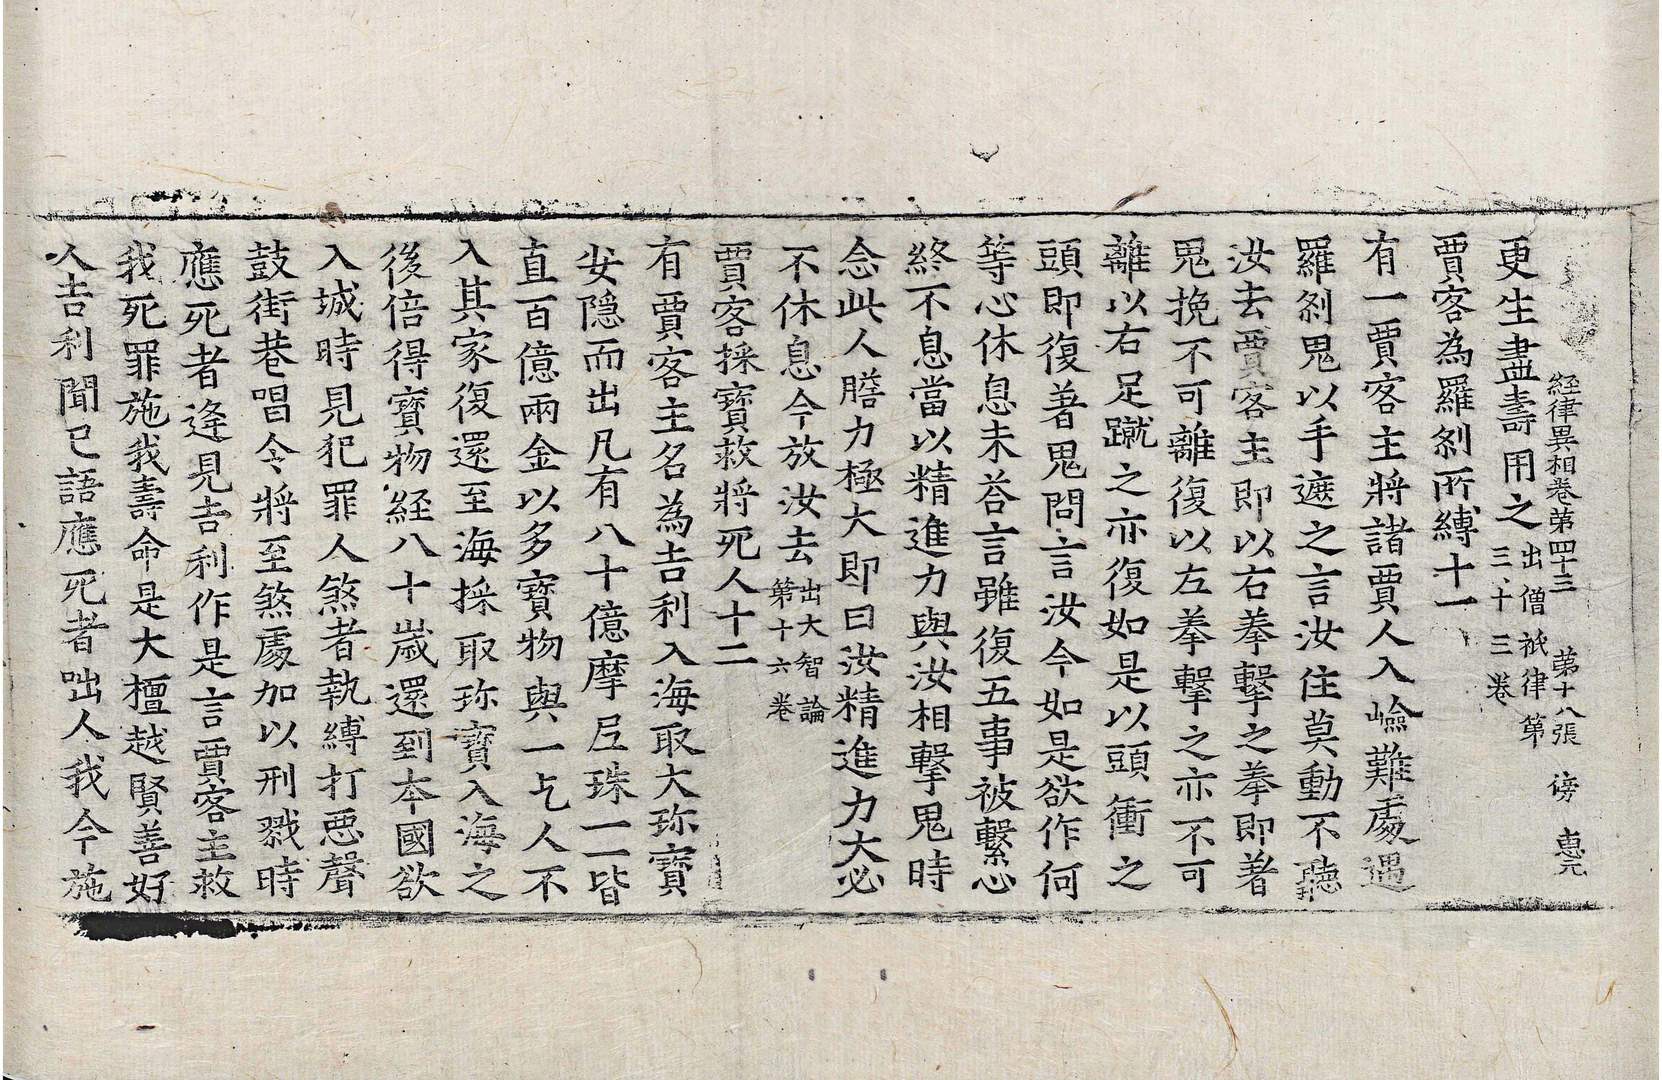 經律異相卷第四十三　第十八張　傍　惠元
更生盡壽用之出僧祇律第三十三卷
賈客為羅剎所縛十一
有一賈客主將諸賈人入嶮難處遇
羅剎鬼以手遮之言汝住莫動不聽
汝去賈客主即以右拳擊之拳即著
鬼挽不可離復以左拳擊之亦不可
離以右足蹴之亦復如是以頭衝之
頭即復著鬼問言汝今如是欲作何
等心休息未荅言雖復五事被繫心
終不息當以精進力與汝相擊鬼時
念此人膽力極大即曰汝精進力大必
不休息今放汝去出大智論第十六卷
賈客採寶救將死人十二
有賈客主名為吉利入海取大珎寶
安隱而出凡有八十億摩尼珠一一皆
直百億兩金以多寶物與一乞人不
入其家復還至海採取珎寶入海之
後倍得寶物經八十歲還到本國欲
入城時見犯罪人煞者執縛打惡聲
鼓街巷唱令將至煞處加以刑戮時
應死者逢見吉利作是言賈客主救
我死罪施我壽命是大檀越賢善好
人吉利聞已語應死者咄人我今施